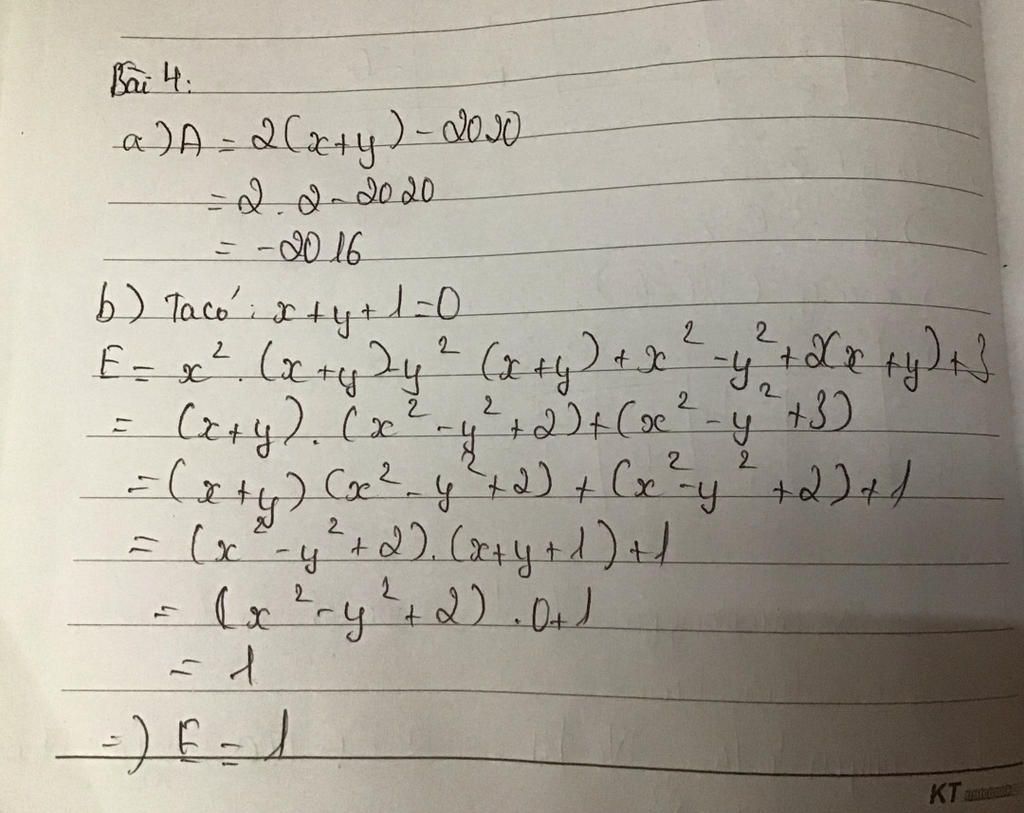 Bài 4:
a) A = 2(x+y) - 2020
= 2. 2 - 2020
= -2016
b) Ta có: x + y + 1 = 0
E = x². (x+y) - y² (x+y) + x² - y² + 2(x+y) + 3
= (x+y). (x² - y² + 2) + (x² - y² + 3)
= (x+y) (x² - y² + 2) + (x² - y² + 2) + 1
= (x² - y² + 2). (x+y+1) + 1
= (x² - y² + 2) .0+1
= 1
=) E = 1
KT